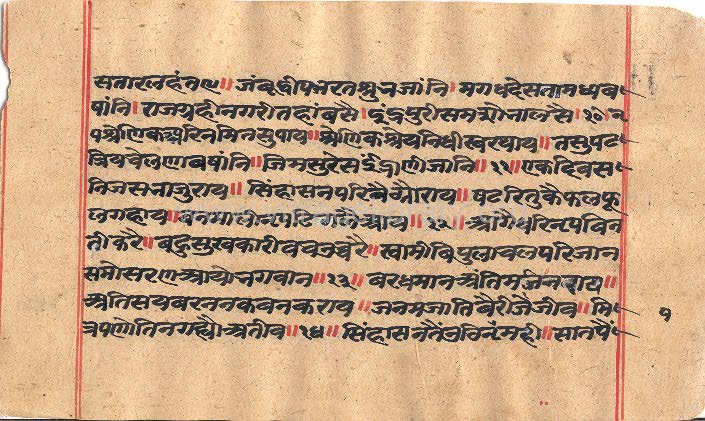 सतारनहंतए॥ जंबूद्वीपभरतशुभजांनि। मगधदेसतामध्यब
षांनि। राजगृहीनगरीतहांबसै। इंद्रपुरीसमसोभालसै।२०।न
पश्रेणिक अरिनमिनसुपाय॥श्रेणिक श्रेयनिधीस्वरथाय। तसुपट
त्रियचेलणाबषांनि॥जिमसुरेसइंद्राणीजानि॥२१॥एकदिवस
निजसभाजुराय॥ सिंहासनपरिबैठोराय॥षटरितुकैफलफू
लगहाय॥ ॥२२॥ आगैधरिनपविन
तीकरै॥बहुसुखकारीवचउचरै॥स्वामीविपुलाचलपरिजान
समोसरणआयोभगवान॥२३॥ वरधमानअंतिमजिनराय॥
अतिसयवरननकवनकराय॥ जनमजातिबैरीजेजीव॥मि
त्रपणौतिनगह्यौअतीव॥२४॥ सिंहासनतै मही॥सातपैं
१